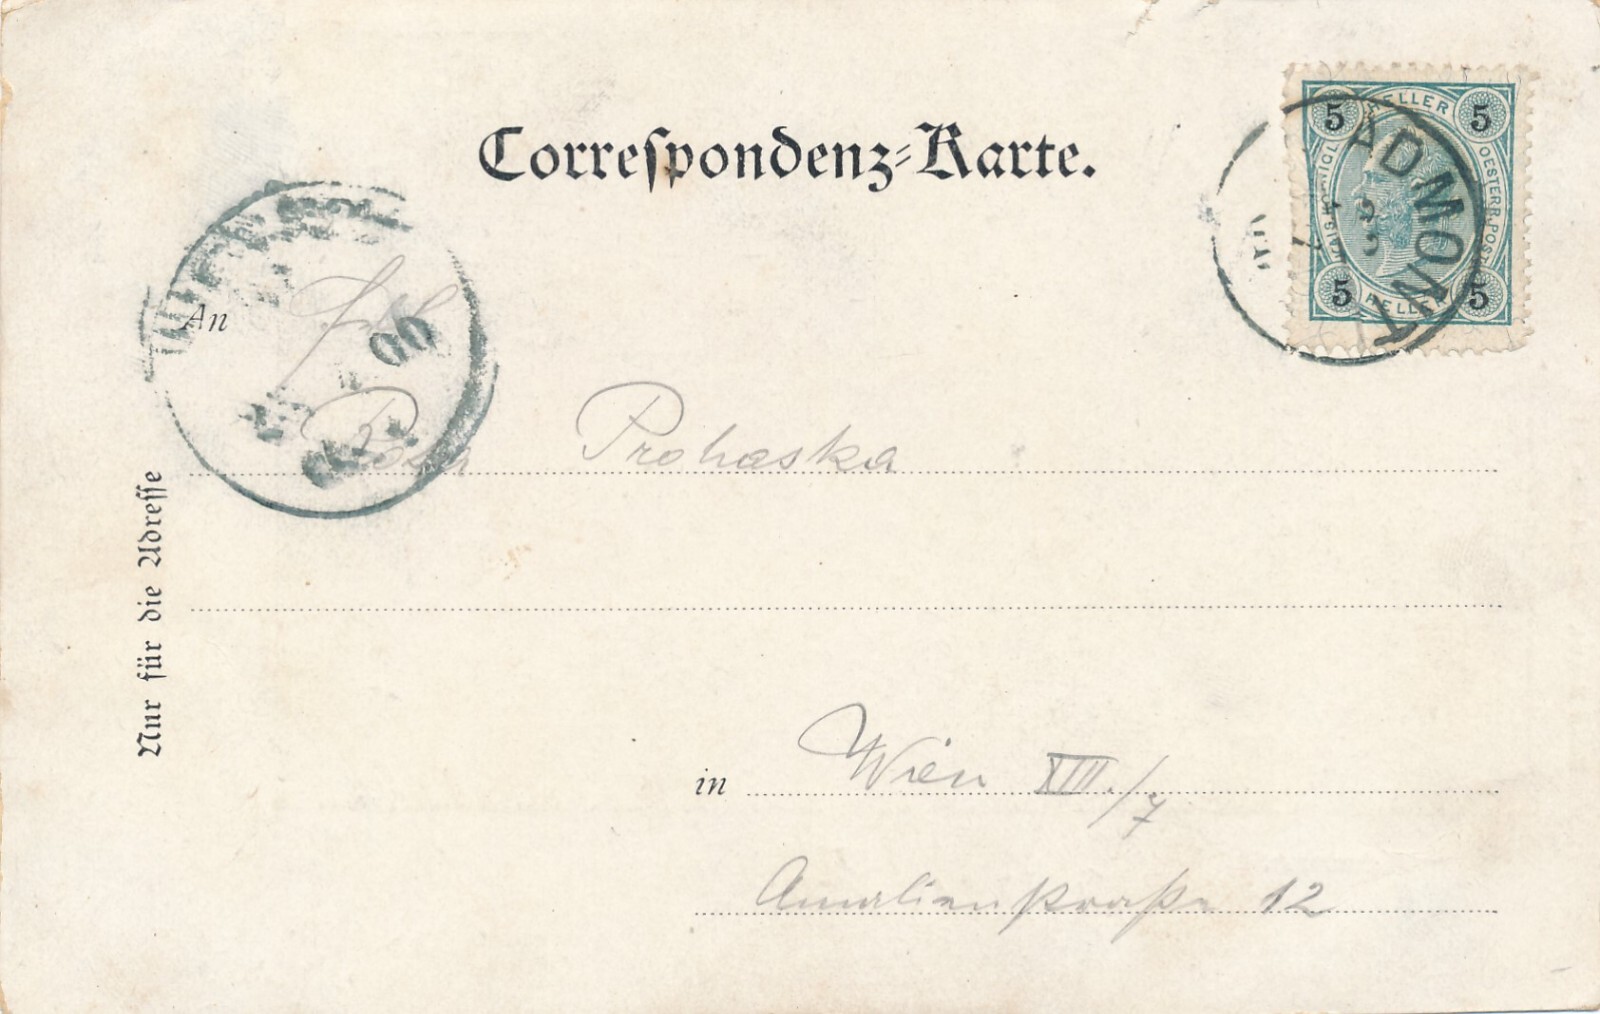 Correspondenz-Karte.
5 HELLER 5
KAIS. KÖNIGL.
OESTERR. POST
5 HELLER 5
ADMONT
An
00
Rosa Prohaska
Nur für die Adresse
in Wien XIII./7
Amalienstraße 12